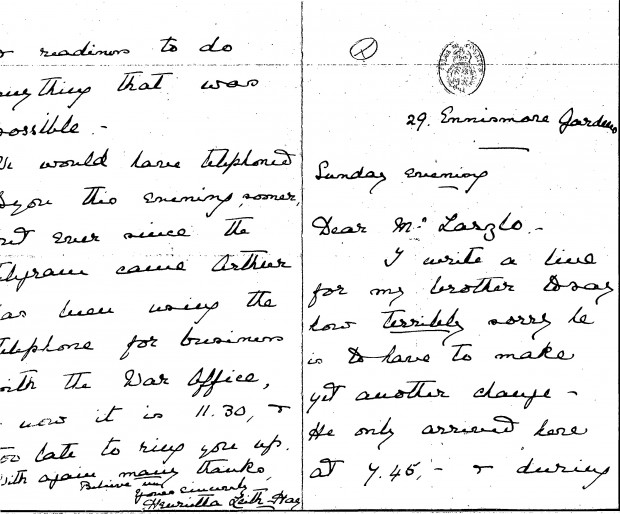 & readiness to do
nything that was
ossible. -
We would have telephoned
to you this evening, sooner,
but ever since the
elegram came Arthur
as been using the
elephone for business
with the War Office,
& now it is 11.30, &
too late to ring you up.
With again many thanks,
Believe me
Yours sincerely
Henrietta Leith Hay
29. Ennismore Gardens
Sunday evening
Dear Mr. Laszlo. -
I write a line
for my brother to say
how terribly sorry he
is to have to make
yet another change -
He only arrived here
at 7.45, - & during